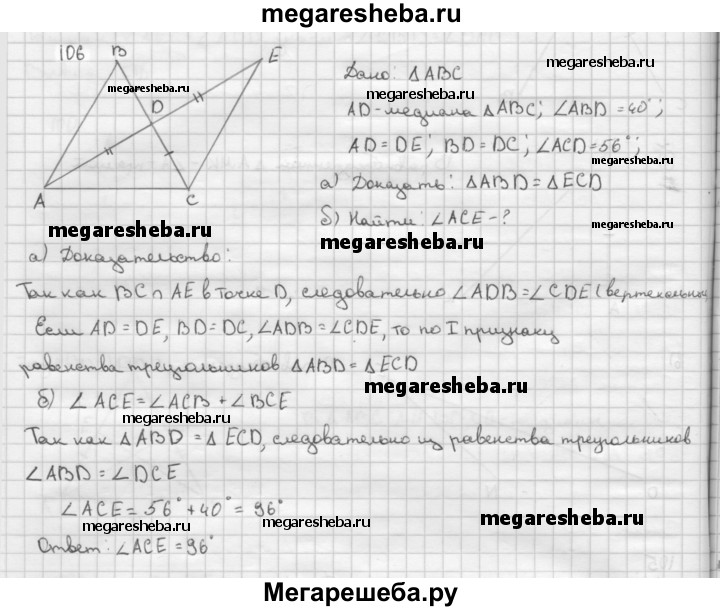 megaresheba.ru
106
B
E
D
A
C
megaresheba.ru
Дано: ΔABC
megaresheba.ru
AD-медиана ΔABC; ∠ABD=40°;
AD=DE; BD=DC; ∠ACD=56°;
megaresheba.ru
а) Доказать: ΔABD=ΔECD
б) Найти: ∠ACE-?
megaresheba.ru
megaresheba.ru
megaresheba.ru
а) Доказательство:
Так как BC∩AE в точке D, следовательно ∠ADB=∠CDE (вертекальные)
Если AD=DE, BD=DC, ∠ADB=∠CDE, то по I признаку
равенства треугольников ΔABD=ΔECD
megaresheba.ru
б) ∠ACE=∠ACB+∠BCE
megaresheba.ru
Так как ΔABD=ΔECD, следовательно из равенства треугольников
∠ABD=∠DCE
∠ACE=56°+40°=96°
megaresheba.ru
megaresheba.ru
megaresheba.ru
Ответ: ∠ACE=96°
megaresheba.ru
Мегарешеба.ру